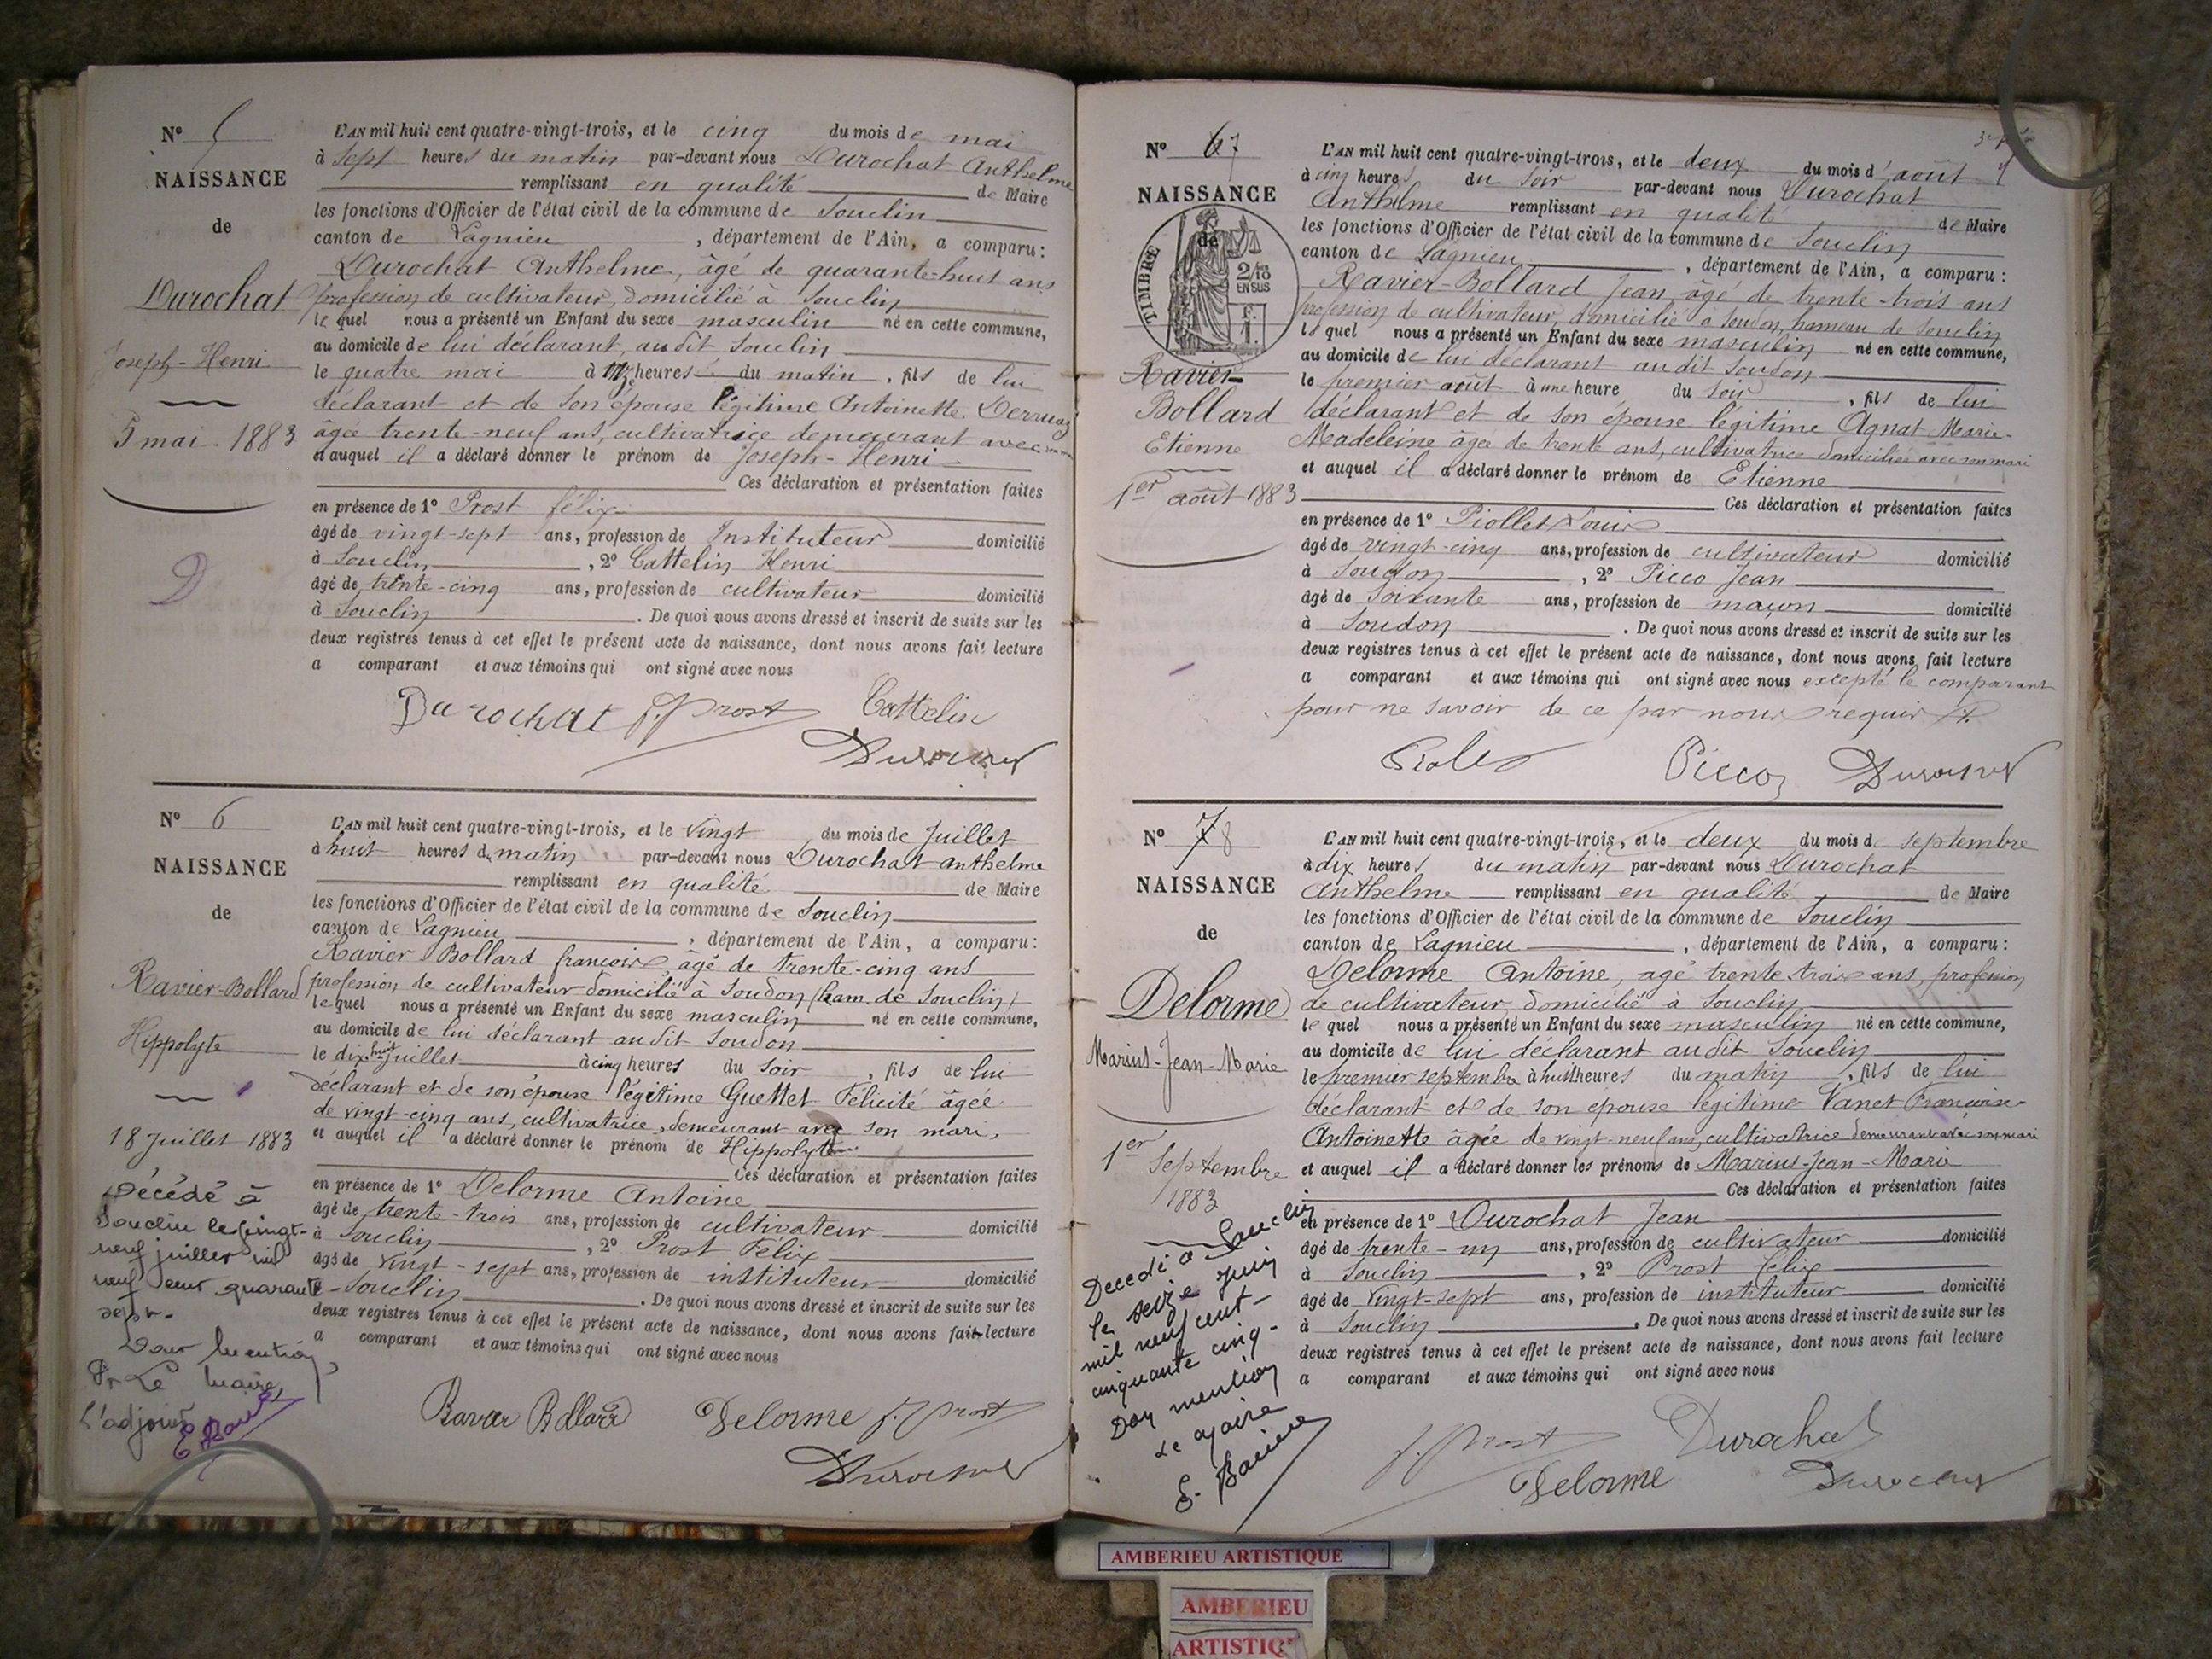 N° 5
NAISSANCE
de
Durochat
Joseph-Henri
5 mai 1883
D
L'AN mil huit cent quatre-vingt-trois, et le cinq du mois de mai
à sept heures du matin par-devant nous Durochat Anthelme
remplissant en qualité de Maire
les fonctions d'Officier de l'état civil de la commune de Souclin
canton de Lagnieu, département de l'Ain, a comparu:
Durochat Anthelme, âgé de quarante-huit ans
profession de cultivateur, domicilié à Souclin
lequel nous a présenté un Enfant du sexe masculin né en cette commune,
au domicile de lui déclarant, au dit Souclin
le quatre mai à heures du matin, fils de lui
déclarant et de son épouse légitime Antoinette
âgée trente-neuf ans, cultivatrice demeurant avec
et auquel il a déclaré donner le prénom de Joseph-Henri
Ces déclaration et présentation faites
en présence de 1° Prost félix
âgé de vingt-sept ans, profession de Instituteur domicilié
à Souclin, 2° Cattelin Henri
âgé de trente-cinq ans, profession de cultivateur domicilié
à Souclin. De quoi nous avons dressé et inscrit de suite sur les
deux registres tenus à cet effet le présent acte de naissance, dont nous avons fait lecture
a comparant et aux témoins qui ont signé avec nous
Durochat f. Prost Cattelin
Durochat
N° 6
NAISSANCE
de
Ravier-Bollard
Hippolyte
18 Juillet 1883
Décédé à
Souclin le vingt-
neuf juillet mil
neuf cent quarante
sept.
Dont mention,
Pr Le Maire,
L'adjoint
L'AN mil huit cent quatre-vingt-trois, et le vingt du mois de Juillet
à huit heures du matin par-devant nous Durochat anthelme
remplissant en qualité de Maire
les fonctions d'Officier de l'état civil de la commune de Souclin
canton de Lagnieu, département de l'Ain, a comparu:
Ravier Bollard françois, âgé de trente-cinq ans
profession de cultivateur domicilié à Soudon (ham. de Souclin)
lequel nous a présenté un Enfant du sexe masculin né en cette commune,
au domicile de lui déclarant au dit Soudon
le dix huit Juillet à cinq heures du soir, fils de lui
déclarant et de son épouse légitime Guettet Félicité âgée
de vingt-cinq ans, cultivatrice, demeurant avec son mari,
et auquel il a déclaré donner le prénom de Hippolyte
Ces déclaration et présentation faites
en présence de 1° Delorme Antoine
âgé de trente-trois ans, profession de cultivateur domicilié
à Souclin, 2° Prost Félix
âgé de vingt-sept ans, profession de instituteur domicilié
à Souclin. De quoi nous avons dressé et inscrit de suite sur les
deux registres tenus à cet effet le présent acte de naissance, dont nous avons fait lecture
a comparant et aux témoins qui ont signé avec nous
Ravier Bollard Delorme f. Prost
Durochat
N° 67
NAISSANCE
de
TIMBRE
2/10 EN SUS
F. 1.
Ravier-
Bollard
Etienne
1er août 1883
L'AN mil huit cent quatre-vingt-trois, et le deux du mois d'août
à cinq heures du soir par-devant nous Durochat
Anthelme remplissant en qualité de Maire
les fonctions d'Officier de l'état civil de la commune de Souclin
canton de Lagnieu, département de l'Ain, a comparu:
Ravier-Bollard Jean, âgé de trente-trois ans
profession de cultivateur, domicilié à Soudon, hameau de Souclin
lequel nous a présenté un Enfant du sexe masculin né en cette commune,
au domicile de lui déclarant au dit Soudon
le premier août à une heure du soir, fils de lui
déclarant et de son épouse légitime Agnat Marie-
Madeleine âgée de trente ans, cultivatrice domiciliée avec son mari
et auquel il a déclaré donner le prénom de Etienne
Ces déclaration et présentation faites
en présence de 1° Piollet Louis
âgé de vingt-cinq ans, profession de cultivateur domicilié
à Soudon, 2° Picco Jean
âgé de soixante ans, profession de maçon domicilié
à Soudon. De quoi nous avons dressé et inscrit de suite sur les
deux registres tenus à cet effet le présent acte de naissance, dont nous avons fait lecture
a comparant et aux témoins qui ont signé avec nous excepté le comparant
pour ne savoir de ce par nous requis
Picco Durochat
N° 78
NAISSANCE
de
Delorme
Marius-Jean-Marie
1er Septembre
1883
Décédé à Souclin
le seize juin
mil neuf cent-
cinquante cinq-
Don mention
Le Maire
L'AN mil huit cent quatre-vingt-trois, et le deux du mois de septembre
à dix heures du matin par-devant nous Durochat
Anthelme remplissant en qualité de Maire
les fonctions d'Officier de l'état civil de la commune de Souclin
canton de Lagnieu, département de l'Ain, a comparu:
Delorme Antoine, âgé trente-trois ans, profession
de cultivateur, domicilié à Souclin
lequel nous a présenté un Enfant du sexe masculin né en cette commune,
au domicile de lui déclarant au dit Souclin
le premier septembre à huit heures du matin, fils de lui
déclarant et de son épouse légitime Vanet Françoise
Antoinette âgée de vingt-neuf ans, cultivatrice demeurant avec son mari
et auquel il a déclaré donner les prénoms de Marius-Jean-Marie
Ces déclaration et présentation faites
en présence de 1° Durochat Jean
âgé de trente-un ans, profession de cultivateur domicilié
à Souclin, 2° Prost félix
âgé de vingt-sept ans, profession de instituteur domicilié
à Souclin. De quoi nous avons dressé et inscrit de suite sur les
deux registres tenus à cet effet le présent acte de naissance, dont nous avons fait lecture
a comparant et aux témoins qui ont signé avec nous
f. Prost Durochat
Delorme Durochat
AMBERIEU ARTISTIQUE
AMBERIEU
ARTISTIQ